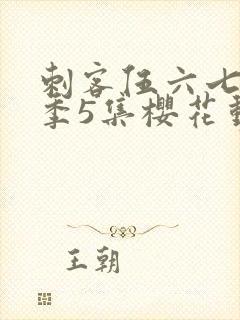 刺客伍六七
季5集樱花動
王朝